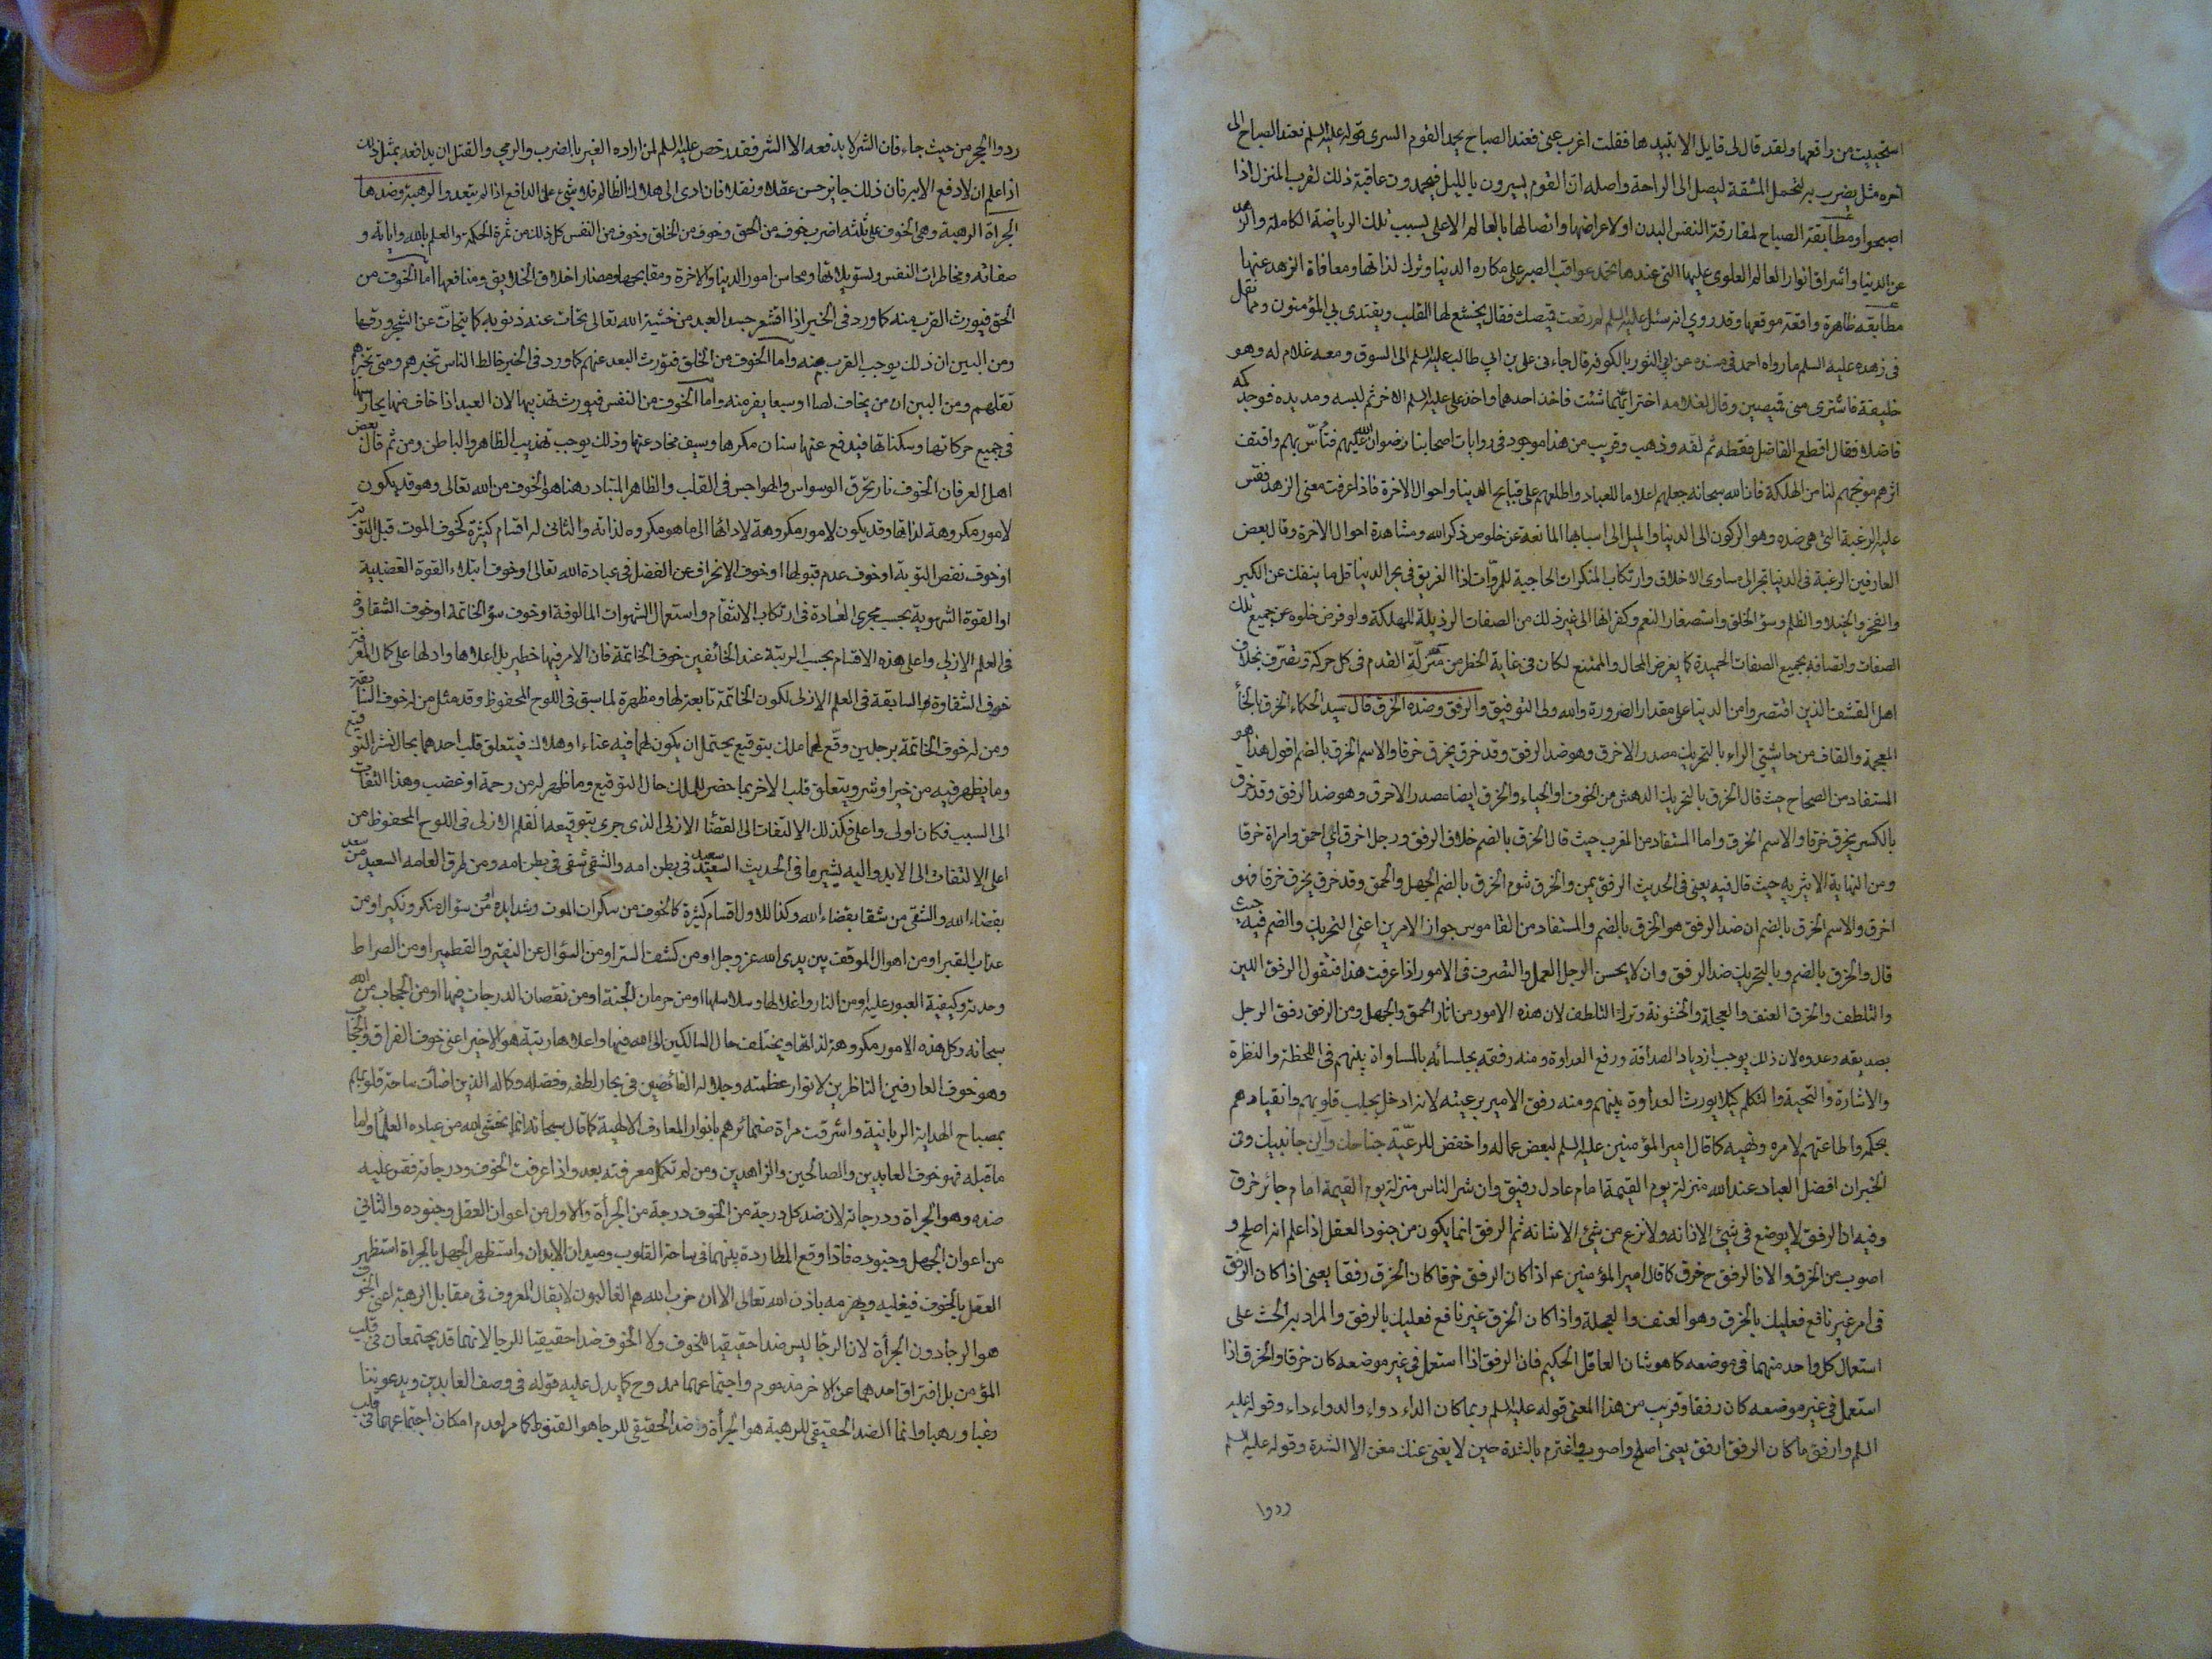 استحييت من راقعها ولقد قال لى قايل الا تنبذها فقلت اغرب عنى فعند الصباح يحمد القوم السرى قوله عليه السلم فعند الصباح الى
اخره مثل يضرب لمحتمل المشقة ليصل الى الراحة واصله ان القوم يسيرون بالليل فيحمدون عاقبة ذلك لقرب المنزل اذا
اصبحوا ومطابقة الصباح لمفارقة النفس البدن او لاعراضها واتصالها بالعالم الاعلى بسبب تلك الرياضة الكاملة والزهد
عن الدنيا واشراق انوار العالم العلوى عليها التى عندها تحمد عواقب الصبر على مكاره الدنيا وترك لذاتها ومعافاة الزهد عنها
مطابقة ظاهرة واقعة موقعها وقد روي انه سئل عليه السلم لم رقعت قميصك فقال يخشع لها القلب ويقتدى بي المؤمنون ومما نقل
فى زهده عليه السلم ما رواه احمد فى مسنده عن ابى النور بالكوفة قال جاءنى على بن ابي طالب عليه السلم الى السوق ومعه غلام له وهو
خليفة فاشترى منى قميصين وقال لغلامه اختر ايهما شئت فاخذ احدهما واخذ على عليه السلم الاخر ثم لبسه ومد يده فوجد كمه
فاضلا فقال اقطع الفاضل فقطعه ثم لفه وذهب وقريب من هذا موجود فى روايات اصحابنا رضوان الله عليهم فتأس بهم واقتف
اثرهم موجهم لنا من الهلكة فان الله سبحانه جعلهم اعلاما للعباد واطلعهم على قبايح الدنيا واحوال الاخرة فاذا عرفت معنى الزهد فقس
عليه الرغبة التى هى ضده وهو الركون الى الدنيا والميل الى اسبابها المانعة عن خلوص ذكر الله ومشاهدة احوال الاخرة وقال بعض
العارفين الرغبة فى الدنيا تجر الى مساوى الاخلاق وارتكاب المنكرات الحاجبة للمروّات اذ الغريق فى بحر الدنيا قل ما ينفك عن الكبر
والفخر والخيلا والظلم وسؤ الخلق واستصغار النعم وكفرانها الى غير ذلك من الصفات الرذيلة المهلكة ولو فرض خلوه عن جميع تلك
الصفات واتصافه بجميع الصفات الحميدة كما يفرض المحال والممتنع لكان فى غاية الخطر من مزلّة القدم فى كل حركة وتصرّف بخلاف
اهل التقشف الذين اقتصروا من الدنيا على مقدار الضرورة والله ولى التوفيق والرفق وضده الخرق قال سيد الحكماء الخرق بالخأ
المعجمة والقاف من حاشيتي الراء بالتحريك مصدر الاخرق وهو ضد الرفيق وقد خرق يخرق خرقا والاسم الخرق بالضم اقول هذا هو
المستفاد من الصحاح حيث قال الخرق بالتحريك الدهش من الخوف او الحياء والخرق ايضا مصدر الاخرق وهو ضد الرفق وقد خرق
بالكسر يخرق خرقا والاسم الخرق واما المستفاد من المغرب حيث قال الخرق بالضم خلاف الرفق ورجل اخرق اي احمق وامراة خرقا
ومن النهاية الاثيرية حيث قال فيه يعنى فى الحديث الرفق يمن والخرق شوم الخرق بالضم الجهل والحمق وقد خرق يخرق خرقا فهو
اخرق والاسم الخرق بالضم ان ضد الرفق هو الخرق بالضم والمستفاد من القاموس جواز الامرين اعنى التحريك والضم فيه حيث
قال والخرق بالضم وبالتحريك ضد الرفق وان لا يحسن الرجل العمل والتصرف فى الامور اذا عرفت هذا فنقول الرفق اللين
والتلطف والخرق العنف والعجلة والخشونة وترك التلطف لان هذه الامور من اثار الحمق والجهل ومن الرفق رفق الرجل
بصديقه وعدوه لان ذلك يوجب ازدياد الصداقة ورفع العداوة ومنه رفقه بجلسائه بالمساواة بينهم فى اللحظة والنظرة
والاشارة والتحية والتكلم كيلا يورث العداوة بينهم ومنه رفق الامير برعيته لانه ادخل بجلب قلوبهم وانقيادهم
بحكمه واطاعتهم لامره ونهيه كما قال امير المؤمنين عليه السلم لبعض عماله واخفض للرعيّة جناحك والن جانبيك وفى
الخبر ان افضل العباد عند الله منزلة يوم القيمة امام عادل رفيق وان شر الناس منزلة يوم القيمة امام جائر خرق
وفيه ان الرفق لا يوضع فى شيئ الا زانه ولا نزع من شيئ الا شانه ثم الرفق انما يكون من جنود العقل اذا علم انه اصلح و
اصوب من الخرق والا فالرفق ح خرق كما قال امير المؤمنين ع اذا كان الرفق خرقا كان الخرق رفقا يعنى اذا كان الرفق
فى امر غير نافع فعليك بالخرق وهو العنف والعجلة واذا كان الخرق غير نافع فعليك بالرفق والمراد به الحث على
استعمال كل واحد منهما فى موضعه كما هو شان العاقل الحكيم فان الرفق اذا استعمل فى غير موضعه كان خرقا والخرق اذا
استعمل فى غير موضعه كان رفقا وقريب من هذا المعنى قوله عليه السلم ربما كان الداء دواء والدواء داء وقوله عليه
السلم وارفق ما كان الرفق ارفق يعنى اصلح واصوب واعتزم بالشدة حين لا يغنى عنك مغن الا الشدة وقوله عليه السلم
ردوا
ردوا الحجر من حيث جاء فان الشر لا يدفعه الا الشر فقد رخص عليه السلم لمن اراده الغير بالضرب والرمي والقتل ان يدافعه بمثل ذلك
اذا علم ان لا دفع الا به فان ذلك جايز حسن عقلا ونقلا فان ادى الى هلاك الظالم فلا شيئ على الدافع اذا لم يتعد والرهبة وضدها
الجراة الرهبة وهى الخوف على ثلثه اضرب خوف من الحق وخوف من الخلق وخوف من النفس كل ذلك من ثمرة الحكمة والعلم بالله واياته و
صفاته ومخاطرات النفس وتسويلاتها ومحاسن امور الدنيا والاخرة ومقابحها ومضار اخلاق الخلايق ومنافعها اما الخوف من
الحق فيورث القرب منه كما ورد فى الخبر اذا اقشعر جسد العبد من خشية الله تعالى تحات عنه ذنوبه كما يتحاتّ عن الشجر ورقها
ومن البين ان ذلك يوجب القرب منه واما الخوف من الخلق فيورث البعد عنهم كما ورد فى الخبر خالط الناس تخبرهم ومتى تخبرهم
تقلهم ومن البين ان من يخاف لصا او سبعا يفر منه واما الخوف من النفس فيورث تهذيبها لان العبد اذا خاف منها يحارسها
فى جميع حركاتها وسكناتها فيدفع عنها سنان مكرها وسيف مخادعتها وذلك يوجب تهذيب الظاهر والباطن ومن ثم قال بعض
اهل العرفان الخوف نار تحرق الوسواس والهواجس فى القلب والظاهر المتبادر هنا هو الخوف من الله تعالى وهو قد يكون
لامور مكروهة لذاتها وقد يكون لامور مكروهة لادائها الى ما هو مكروه لذاته والثانى له اقسام كثيرة كخوف الموت قبل التوبة
او خوف نقص التوبة او خوف عدم قبولها او خوف الانحراف عن الفضل فى عبادة الله تعالى او خوف ابتلاء القوة الغضبية
او القوة الشهوية بحسب مجرى العادة فى ارتكاب الانتقام واستعمال الشهوات المالوفة او خوف سؤ الخاتمة او خوف الشقاوة
فى العلم الازلى واعلى هذه الاقسام بحسب الرتبة عند الخائفين خوف الخاتمة فان الامر فيها خطير بل اعلاها وادلها على كمال المعرفة
خوف الشقاوة السابقة فى العلم الازلى لكون الخاتمة تابعة لها ومظهرة لما سبق فى اللوح المحفوظ وقد مثل من له خوف السابقة
ومن له خوف الخاتمة برجلين وقّع لهما ملك بتوقيع يحتمل ان يكون لهما فيه غناء او هلاك فيتعلق قلب احدهما بحال نشر التوقيع
وما يظهر فيه من خير او شر ويتعلق قلب الاخر بما حضر للملك حال التوقيع وما ظهر له من رحمة او غضب وهذا التفات
الى السبب فكان اولى واعلى فكذلك الالتفات الى القضأ الازلى الذى جرى بتوقيعه القلم الازلى فى اللوح المحفوظ من
اعلى الالتفات الى الابد واليه يشير ما فى الحديث السعيد سعيد فى بطن امه والشقى شقى فى بطن امه ومن طرق العامه السعيد من سعد
بقضاء الله والشقى من شقا بقضاء الله وكذا للاول اقسام كثيرة كالخوف من سكرات الموت وشدايده او من سؤال منكر ونكير او من
عذاب القبر او من اهوال الموقف بين يدى الله عز وجل او من كشف الستر او من السؤال عن النقير والقطمير او من الصراط
وحدته وكيفية العبور عليه او من النار واغلالها وسلاسلها او من حرمان الجنة او من نقصان الدرجات فيها او من الحجاب من الله
سبحانه وكل هذه الامور مكروهة لذاتها ويختلف حال السالكين الى الله فيها واعلاها رتبة هو الاخير اعنى خوف الفراق والحجاب
وهو خوف العارفين الناظرين لانوار عظمته وجلاله الغائصين فى بحار لطفه وفضله وكماله الذين اضأت ساحة قلوبهم
بمصباح الهداية الربانية واشرقت مراة ضمائرهم بانوار المعارف الالهية كما قال سبحانه انما يخشى الله من عباده العلمأ واما
ما قبله فهو خوف العابدين والصالحين والزاهدين ومن لم تكمل معرفته بعد واذا عرفت الخوف ودرجاته فقس عليه
ضده وهو الجراة ودرجاته لان ضد كل درجة من الخوف درجة من الجرأة والاول من اعوان العقل وجنوده والثاني
من اعوان الجهل وجنوده فاذا وقع المطاردة بينهما فى ساحة القلوب وميدان الابدان واستظهر الجهل بالجراة استظهر
العقل بالخوف فيغلبه ويهزمه باذن الله تعالى الا ان حزب الله هم الغالبون لا يقال المعروف فى مقابل الرهبة اعنى الخوف
هو الرجأ دون الجرأة لان الرجأ ليس ضدا حقيقيا للخوف ولا الخوف ضدا حقيقيا للرجا لانهما قد يجتمعان فى قلب
المؤمن بل افتراق احدهما عن الاخر مذموم واجتماعهما ممدوح كما يدل عليه قوله فى وصف العابدين ويدعوننا
رغبا ورهبا وانما الضد الحقيقى للرهبة هو الجرأة وضد الحقيقى للرجا هو القنوط كما مر لعدم امكان اجتماعهما فى قلب